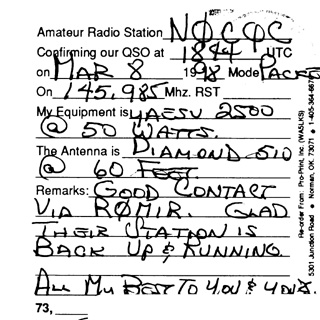 Amateur Radio Station NØCQC
Confirming our QSO at 1844 UTC
on MAR 8 1998 Mode PACKET
On 145.985 Mhz. RST
My Equipment is YAESU 2500
@ 50 WATTS.
The Antenna is DIAMOND 510
@ 60 FEET
Remarks: GOOD CONTACT
VIA RØMIR. GLAD
THEIR STATION IS
BACK UP & RUNNING
ALL MY BEST TO YOU & YOURS.
73,
Re-order From: Pro-Print, Inc (WA5LKS)
5301 Junction Road • Norman, OK. 73071 • 1-405-364-